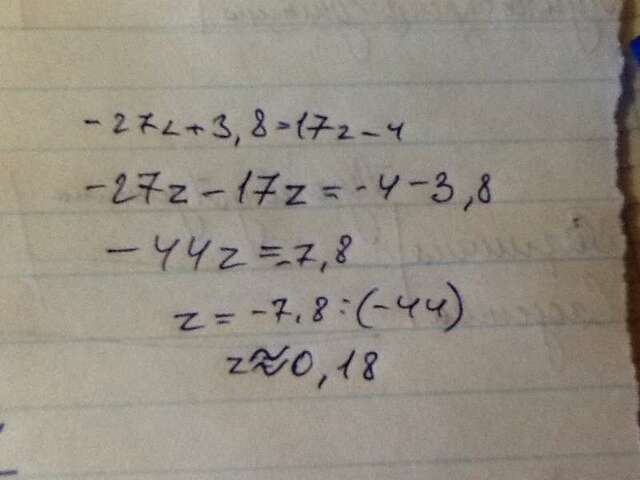 -27z+3,8=17z-4
-27z-17z=-4-3,8
-44z=-7,8
z=-7,8:(-44)
z≈0,18